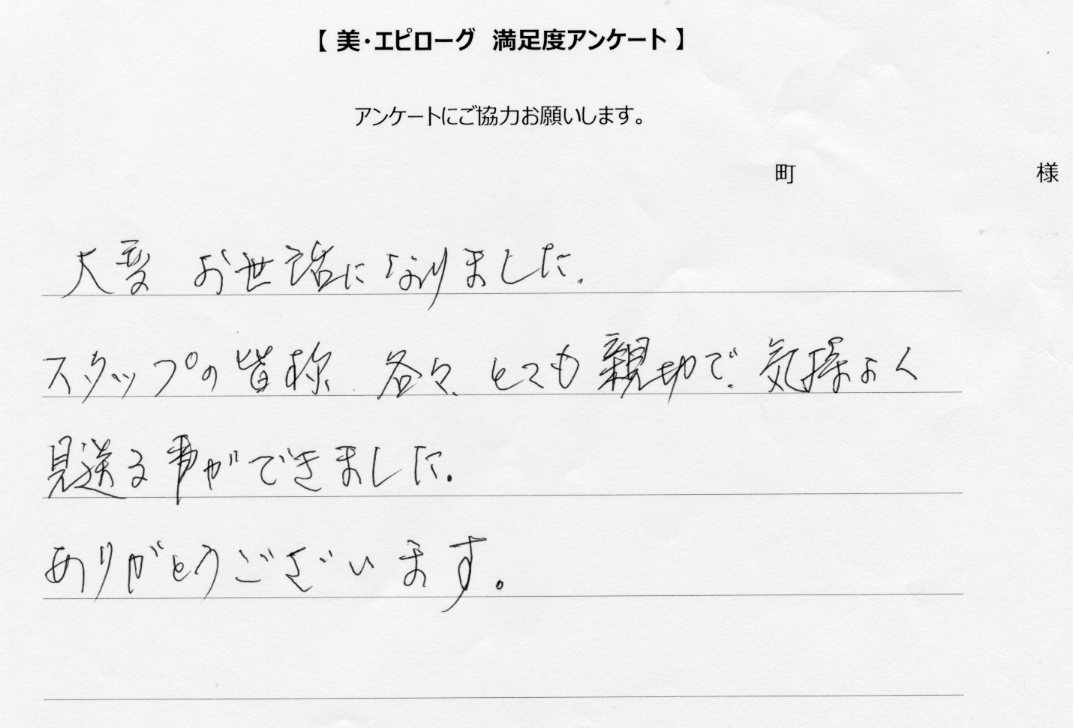 【 美・エピローグ 満足度アンケート 】
アンケートにご協力お願いします。
町 様
大変 お世話になりました.
スタッフの皆様 各々、とても親切で、気持よく
見送る事ができました.
ありがとうございます。